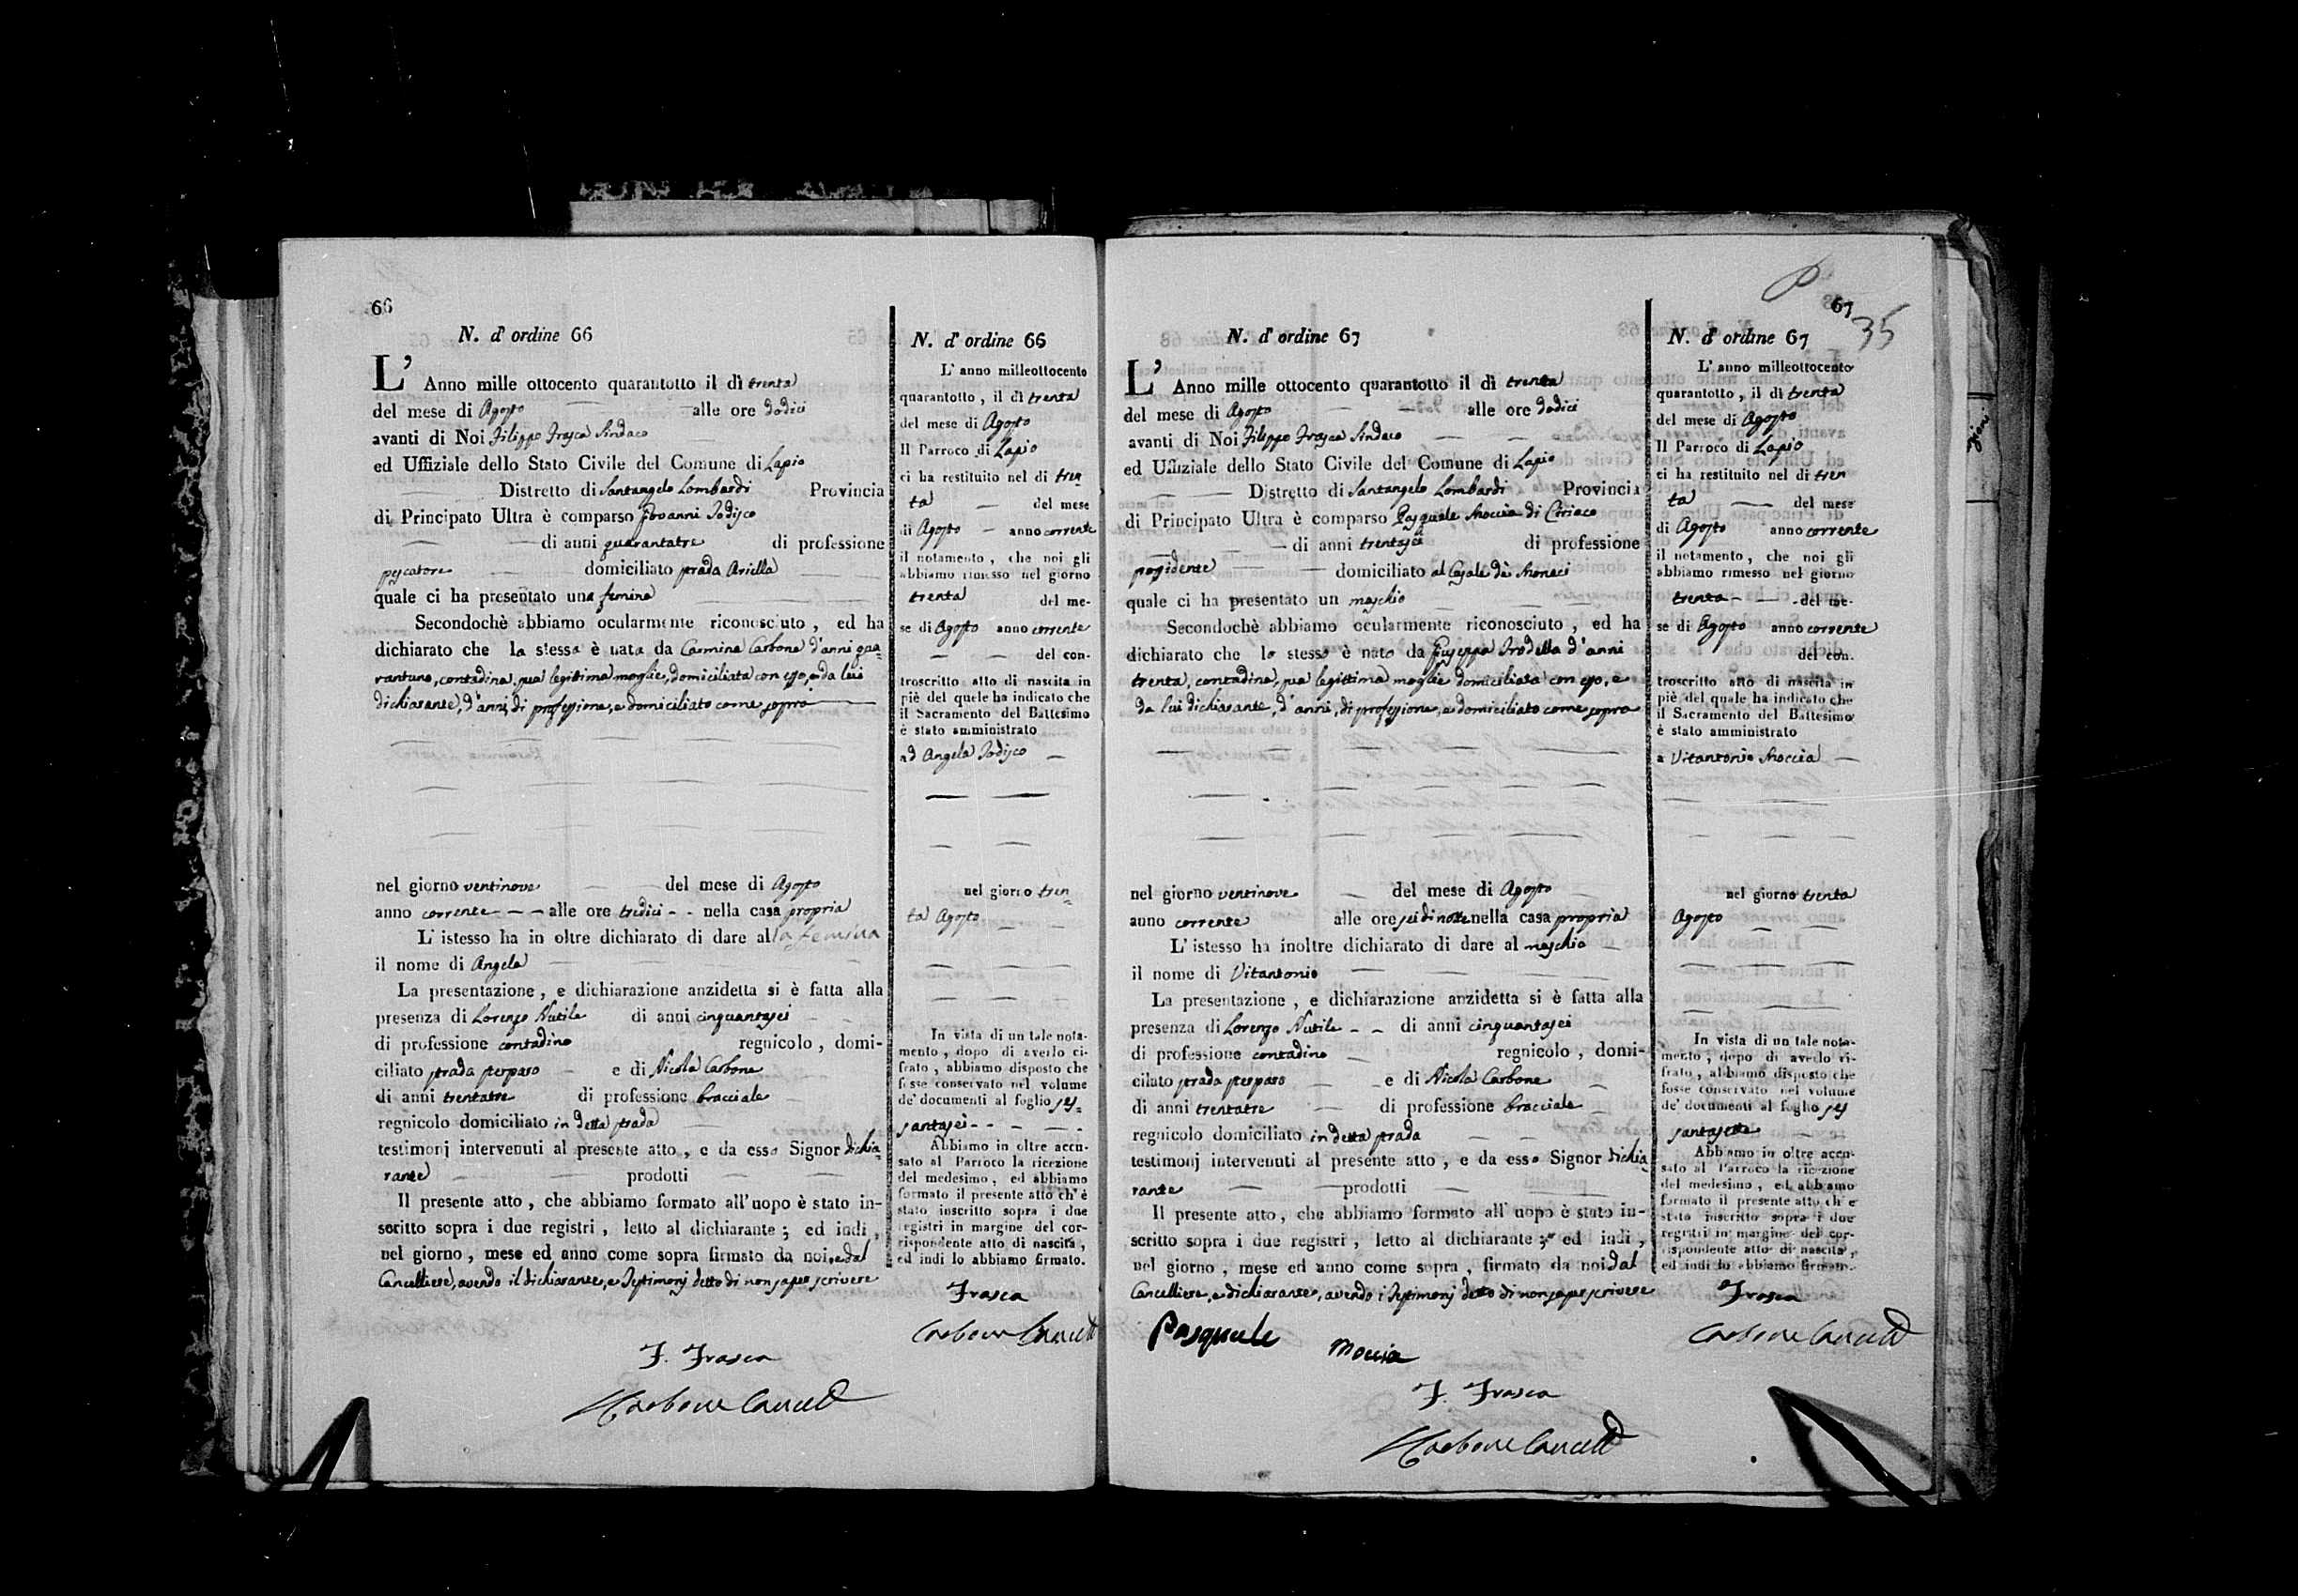 66
N. d' ordine 66
L' Anno mille ottocento quarantotto il dì trenta
del mese di Agosto alle ore dodici
avanti di Noi Filippo Frasca Sindaco
ed Uffiziale dello Stato Civile del Comune di Lapio
Distretto di Santangelo Lombardi Provincia
di Principato Ultra è comparso Giovanni Iodisco
di anni quarantatre di professione
pescatore domiciliato strada Ariella
quale ci ha presentato una femina
Secondochè abbiamo ocularmente riconosciuto, ed ha
dichiarato che la stessa è nata da Carmina Carbone d'anni qua-
rantuno, contadina, sua legittima moglie, domiciliata con esso, e da lui
dichiarante, d'anni, di professione, e domiciliato come sopra
nel giorno ventinove del mese di Agosto
anno corrente alle ore tredici nella casa propria
L' istesso ha in oltre dichiarato di dare alla femina
il nome di Angela
La presentazione, e dichiarazione anzidetta si è fatta alla
presenza di Lorenzo Nutile di anni cinquantasei
di professione contadino regnicolo, domi-
ciliato strada perparo e di Nicola Carbone
di anni trentatre di professione bracciale
regnicolo domiciliato in detta strada
testimonj intervenuti al presente atto, e da esso Signor dichia-
rante prodotti
Il presente atto, che abbiamo formato all'uopo è stato in-
scritto sopra i due registri, letto al dichiarante; ed indi,
nel giorno, mese ed anno come sopra firmato da noi, e dal
Cancelliere, avendo il dichiarante, e Testimonj detto di non saper scrivere
F. Frasca
Carbone Cancell
N. d' ordine 66
L' anno milleottocento
quarantotto, il dì trenta
del mese di Agosto
Il Parroco di Lapio
ci ha restituito nel dì tren-
ta del mese
di Agosto anno corrente
il notamento, che noi gli
abbiamo rimesso nel giorno
trenta del me-
se di Agosto anno corrente
del con-
troscritto atto di nascita in
piè del quele ha indicato che
il Sacramento del Battesimo
è stato amministrato
ad Angela Iodisco
nel giorno tren-
ta Agosto
In vista di un tale nota-
mento, dopo di averlo ci-
frato, abbiamo disposto che
fosse conservato nel volume
de' documenti al foglio ses-
santasei
Abbiamo in oltre accu-
sato al Parroco la ricezione
del medesimo, ed abbiamo
formato il presente atto ch'è
stato inscritto sopra i due
registri in margine del cor-
rispondente atto di nascita,
ed indi lo abbiamo firmato.
Frasca
Carbone Cancell
67
35
N. d' ordine 67
L' Anno mille ottocento quarantotto il dì trenta
del mese di Agosto alle ore dodici
avanti di Noi Filippo Frasca Sindaco
ed Uffiziale dello Stato Civile del Comune di Lapio
Distretto di Santangelo Lombardi Provincia
di Principato Ultra è comparso Pasquale Moccia di Ciriaco
di anni trentasei di professione
possidente domiciliato al Casale de' Monaci
quale ci ha presentato un maschio
Secondochè abbiamo ocularmente riconosciuto, ed ha
dichiarato che lo stesso è nato da Giuseppa Trodella d'anni
trenta, contadina, sua legittima moglie domiciliata con esso, e
da lui dichiarante, d'anni, di professione, e domiciliato come sopra
nel giorno ventinove del mese di Agosto
anno corrente alle ore sei di notte nella casa propria
L' istesso ha inoltre dichiarato di dare al maschio
il nome di Vitantonio
La presentazione, e dichiarazione anzidetta si è fatta alla
presenza di Lorenzo Nutile di anni cinquantasei
di professione contadino regnicolo, domi-
cilato strada perparo e di Nicola Carbone
di anni trentatre di professione bracciale
regnicolo domiciliato in detta strada
testimonj intervenuti al presente atto, e da esso Signor dichia
rante prodotti
Il presente atto, che abbiamo formato all' uopo è stato in-
scritto sopra i due registri, letto al dichiarante; ed indi,
nel giorno, mese ed anno come sopra, firmato da noi dal
Cancelliere, e dichiarante, avendo i Testimonj detto di non saper scrivere
Pasquale Moccia
F. Frasca
Carbone Cancell
N. d' ordine 67
L' anno milleottocento
quarantotto, il dì trenta
del mese di Agosto
Il Parroco di Lapio
ci ha restituito nel dì tren
ta del mese
di Agosto anno corrente
il notamento, che noi gli
abbiamo rimesso nel giorno
trenta del me-
se di Agosto anno corrente
del con-
troscritto atto di nascita in
piè del quale ha indicato che
il Sacramento del Battesimo
è stato amministrato
a Vitantonio Moccia
nel giorno trenta
Agosto
In vista di un tale nota-
mento, dopo di averlo ci-
frato, abbiamo disposto che
fosse conservato nel volume
de' documenti al foglio ses
santasette
Abbiamo in oltre accu-
sato al Parroco la ricezione
del medesimo, ed abbiamo
formato il presente atto ch'è
stato inscritto sopra i due
registri in margine del cor-
rispondente atto di nascita,
ed indi lo abbiamo firmato.
Frasca
Carbone Cancell